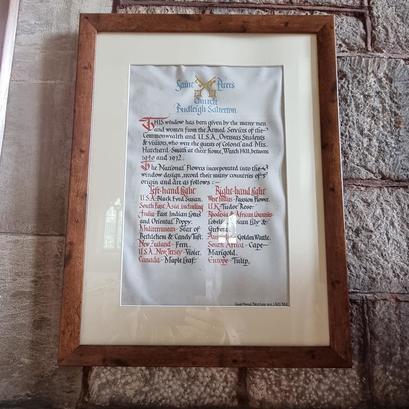 Saint Peters
Church
Budleigh Salterton
THIS window has been given by the many men
and women from the Armed Services of the
Commonwealth and U.S.A., Overseas Students
& visitors, who were the guests of Colonel and Mrs.
Hatchard Smith at their home, Watch Hill, between
1940 and 1972.
The National Flowers incorporated into the
window design, record their many countries of
origin and are as follows :-
Left-hand light
U.S.A. Black Eyed Susan.
South East Asia, including
India - East Indian Lotus
and Oriental Poppy.
Mediterranean - Star of
Bethlehem & Candy Tuft.
New Zealand - Fern.
U.S.A. New Jersey - Violet.
Canada - Maple Leaf.
Right-hand light
West Indies - Passion Flower.
U.K. Tudor Rose.
Rhodesia & African Countries
Lily &
Gerbera.
Golden Wattle.
South Africa - Cape
Marigold.
Europe - Tulip.